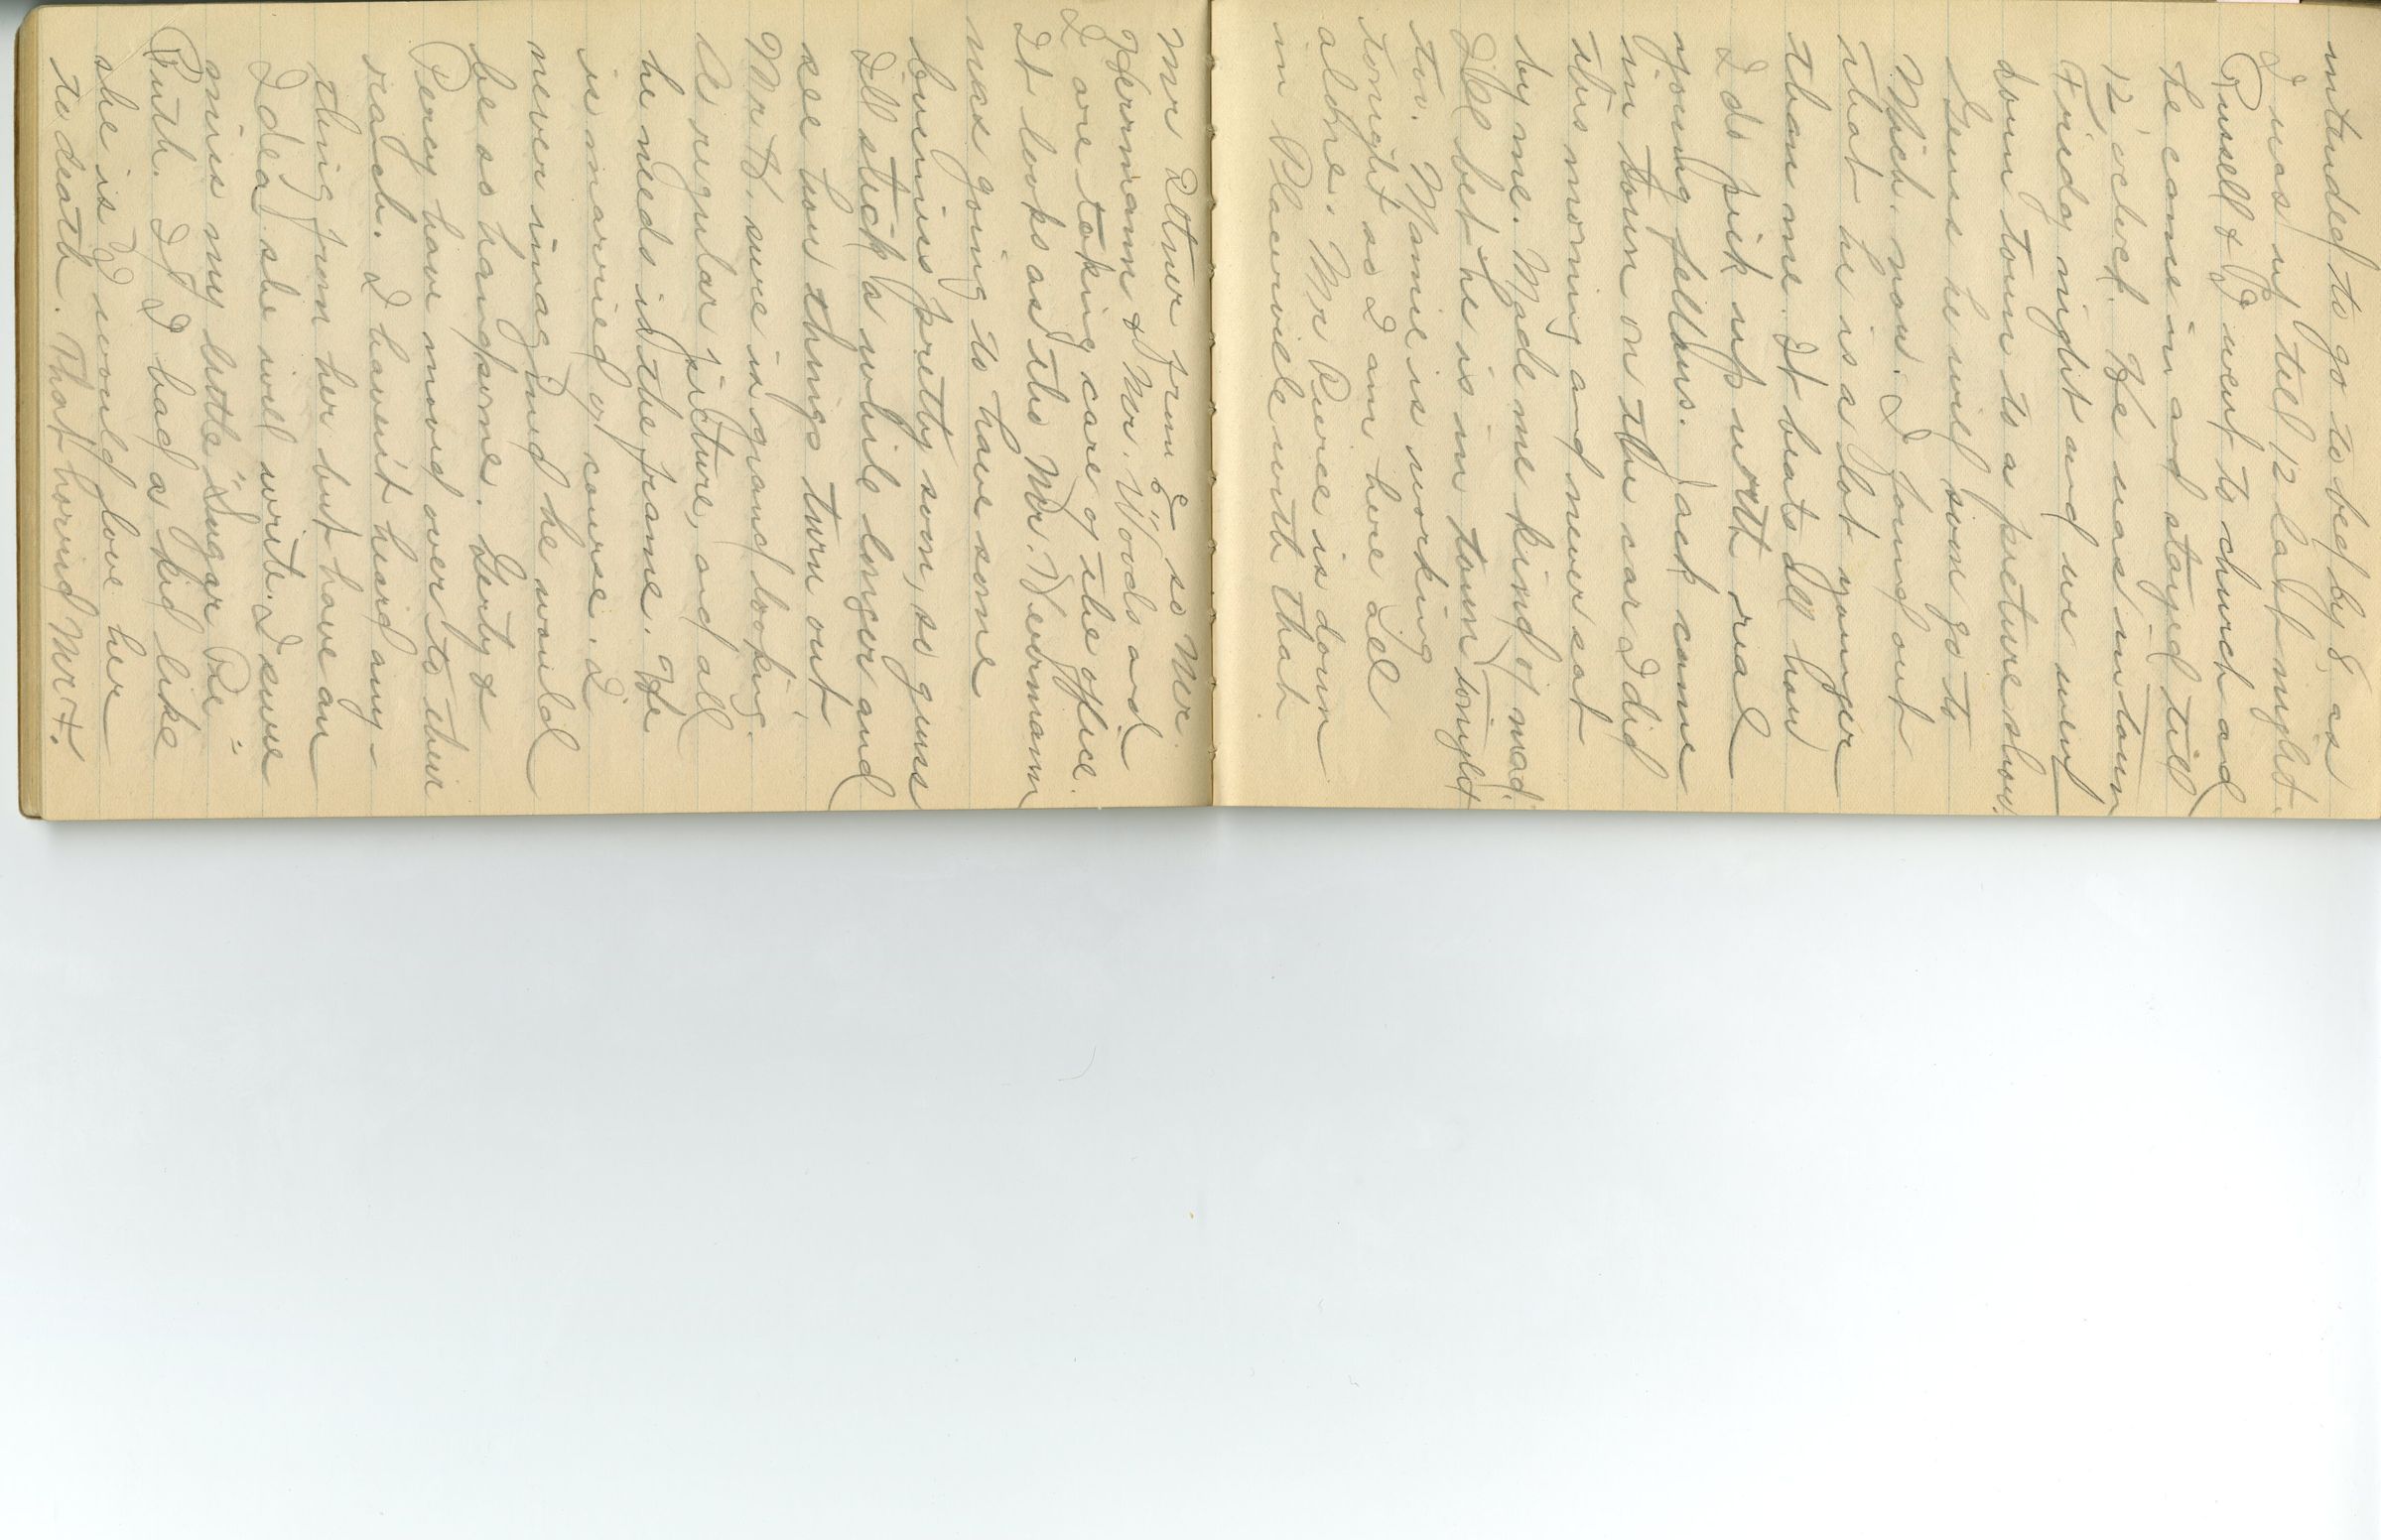 intended to go to bed by 8, as
I was up till 12 last night.
Russell & I went to church and
he came in and stayed till
12 oclock. He was in town
Friday night and we went
down town to a picture show.
Guess he will soon go to
Mich. now. I found out
that he is a lot younger
than me. It beats all how
I do pick up with real
young fellows. Jack came
in town on the car I did
this morning and never sat
by me. Made me kind of mad.
I'll bet he is in town tonight
too. Mamie is working
tonight so I am here all
alone. Mr Pierce is down
in Placerville with that
Mr from E so Mr.
Herrmann & Mr. Woods and
I are taking care of the office.
It looks as tho Mr. Herrmann
was going to have some
business pretty soon, so guess
I'll stick a while longer and
see how things turn out.
Mr H. sure is grand looking.
A regular picture, and all
he needs is the frame. He
is married of course. I
never imagined he would
be so handsome. Gerty &
Percy have moved over to their
ranch. I havent heard any-
thing from her but have an
Idea she will write. I sure
miss my little "Sugar Pie"
Ruth. If I had a kid like
she is I would love her
to death. That horrid Mr H.